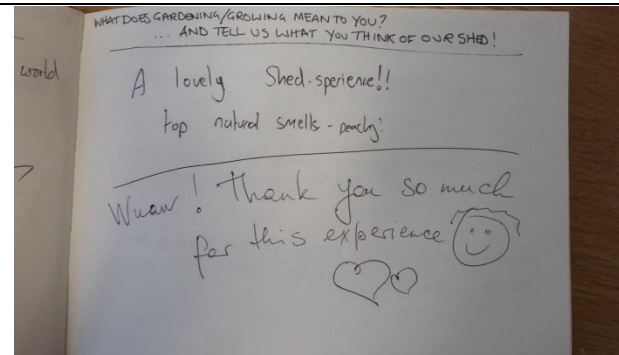 WHAT DOES GARDENING/GROWING MEAN TO YOU?
... AND TELL US WHAT YOU THINK OF OUR SHED!
world
A lovely Shed-sperience!!
top natural smells - peachy!
Wuaw! Thank you so much
for this experience